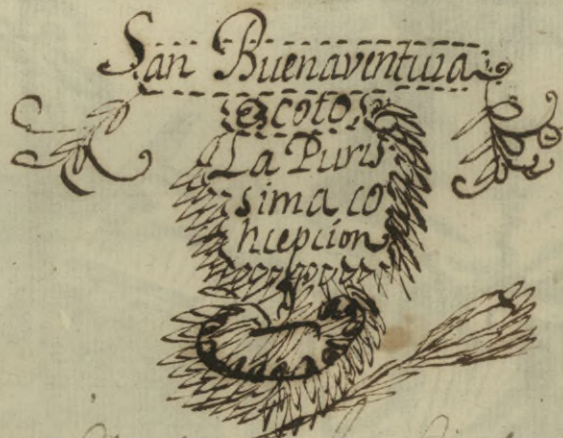 San Buenaventura
escoto
La Puris
sima co
ncepcion